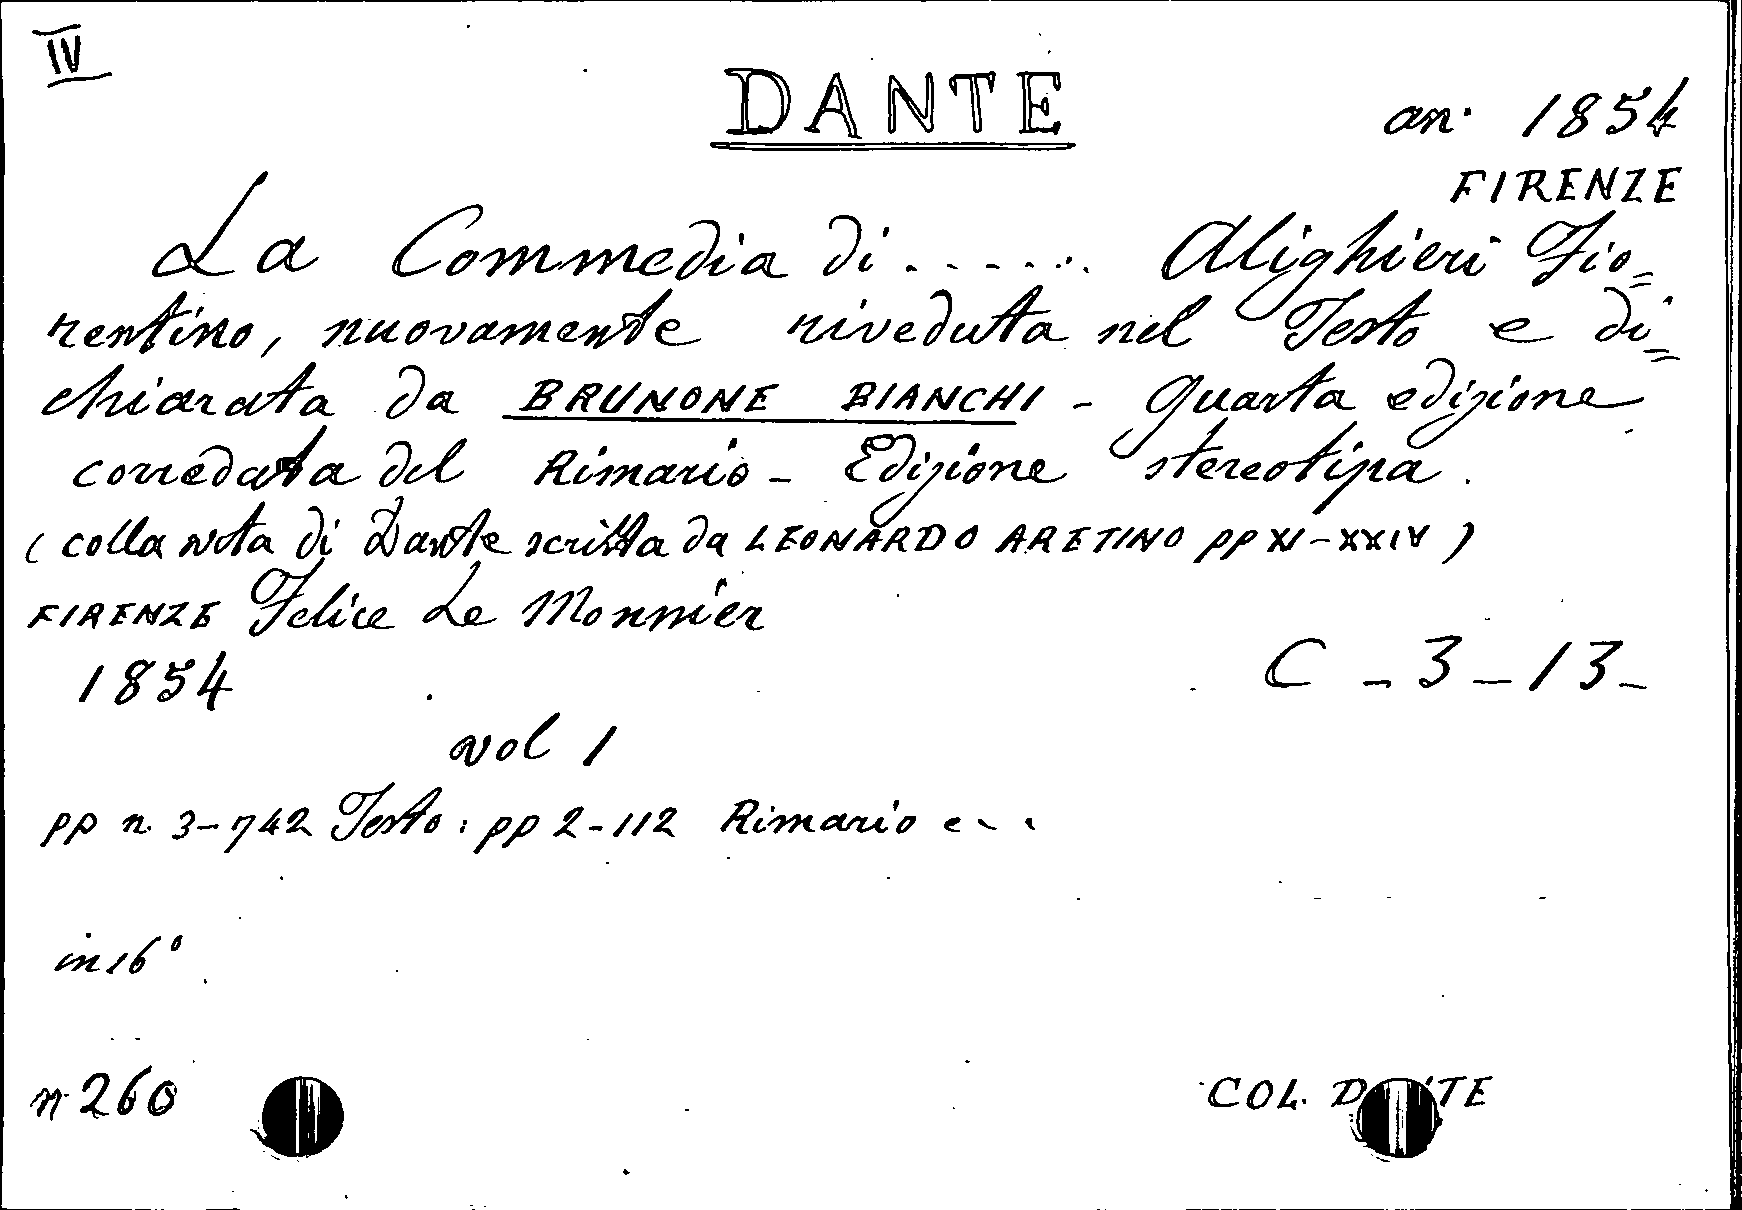 IV
DANTE
an. 1854
FIRENZE
La Commedia di ...... Alighieri Fio=
rentino, nuovamente riveduta nel Testo e di=
chiarata da BRUNONE BIANCHI - Quarta edizione
corredata del Rimario - Edizione stereotipa.
(colla vita di Dante scritta da LEONARDO ARETINO pp XI-XXIV)
FIRENZE Felice Le Monnier
1854
C - 3 - 13 -
vol 1
pp n. 3-742 Testo: pp 2-112 Rimario e...
in 16°
n 260
COL.